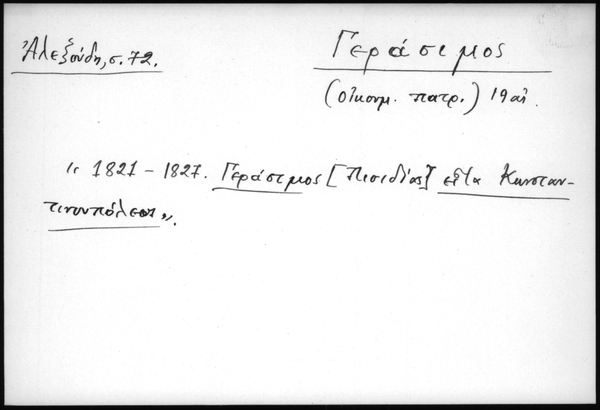 Ἀλεξούδη, σ. 72.
Γεράσιμος
(οἰκουμ. πατρ.) 19 αἰ.
" 1821 – 1827. Γεράσιμος [Πισιδίας] εἶτα Κωνσταν-
τινουπόλεως".